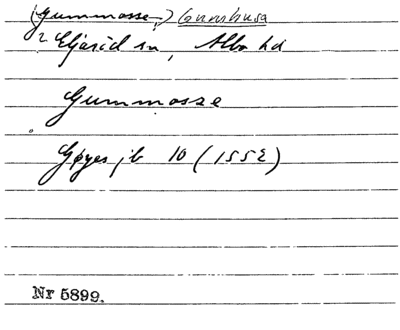 (Gummosse,) Gumhusa
? Eljaröd sn, Albo hd
Gummosze
Gøyes jb 10 (1552)
Nr 5899.